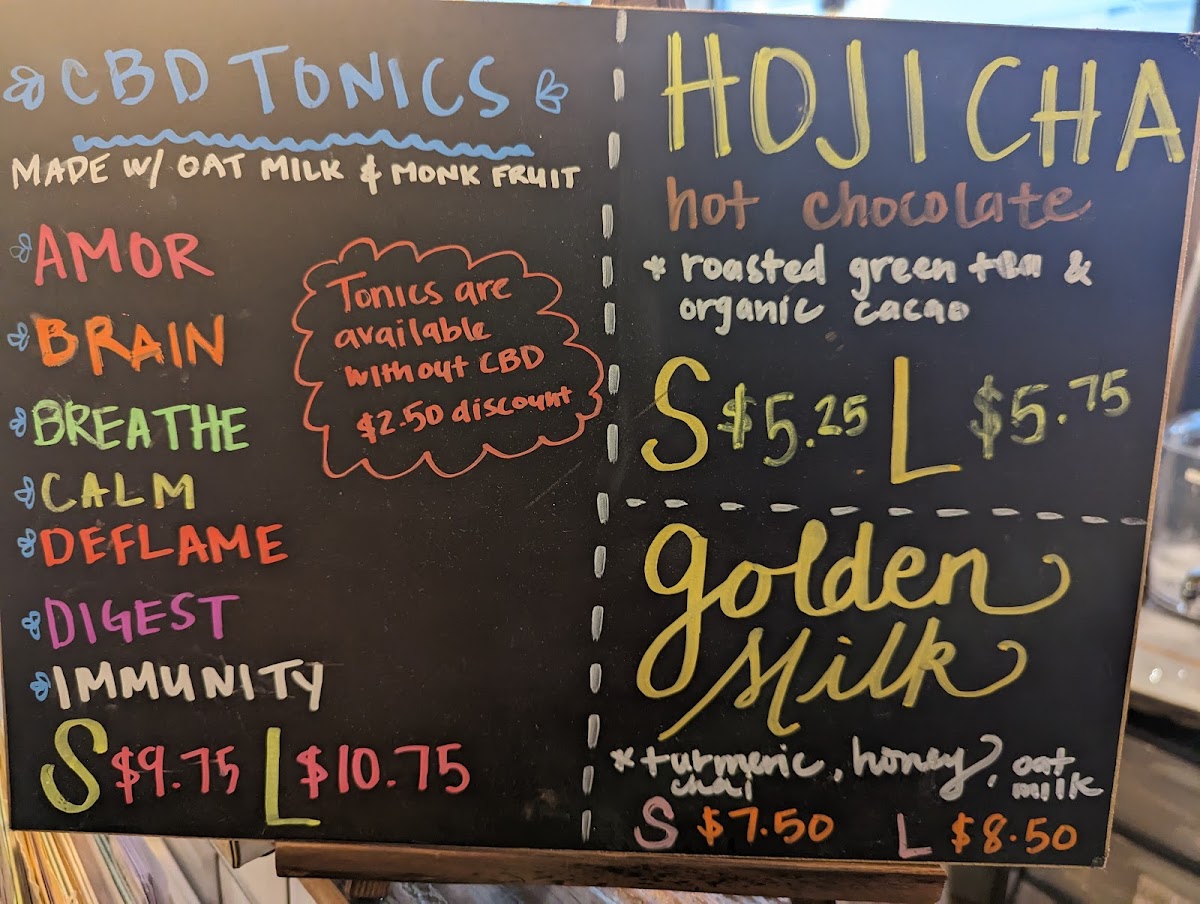 CBD TONICS
MADE W/ OAT MILK & MONK FRUIT
AMOR
BRAIN
BREATHE
CALM
DEFLAME
DIGEST
IMMUNITY
S $9.75 L $10.75
Tonics are
available
without CBD
$2.50 discount
HOJICHA
hot chocolate
* roasted green tea &
organic cacao
S $5.25 L $5.75
golden
Milk
* turmeric, honey, oat
chai milk
S $7.50 L $8.50